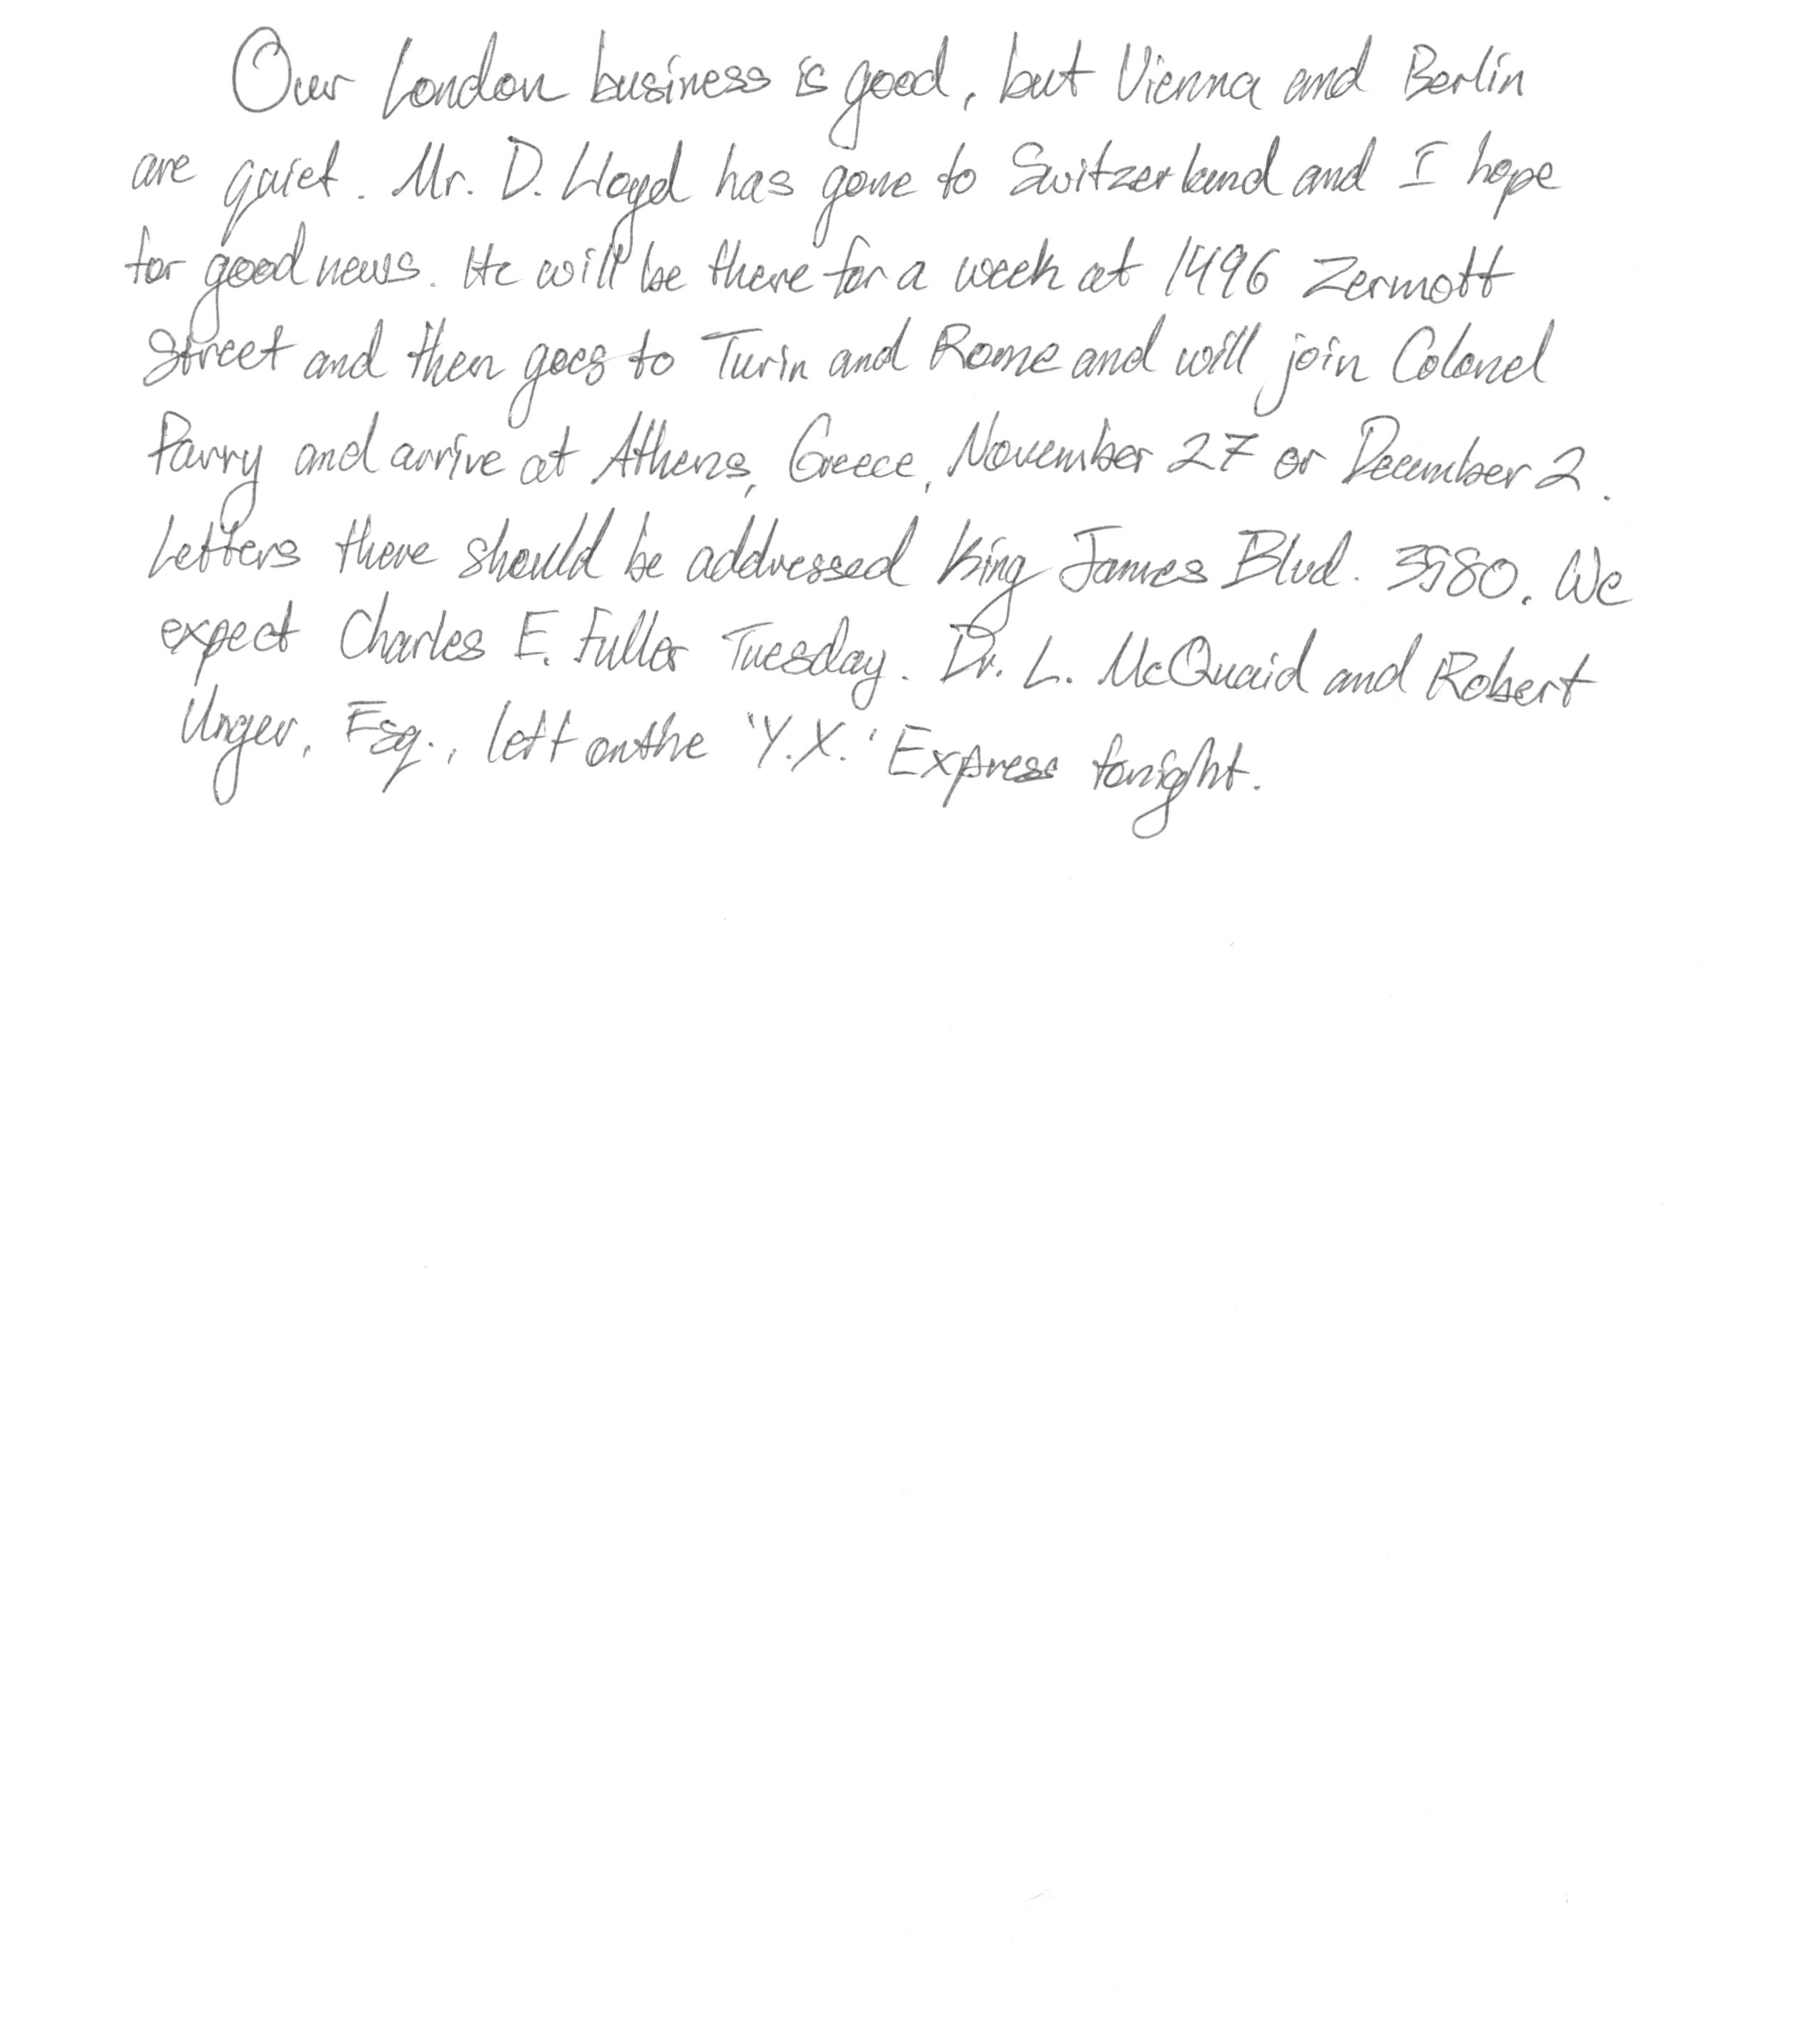 Our London business is good, but Vienna and Berlin
are quiet. Mr. D. Lloyd has gone to Switzerland and I hope
for good news. He will be there for a week at 1496 Zermott
Street and then goes to Turin and Rome and will join Colonel
Parry and arrive at Athens, Greece, November 27 or December 2.
Letters there should be addressed King James Blvd. 3580. We
expect Charles E. Fuller Tuesday. Dr. L. McQuaid and Robert
Unger, Esq., left on the 'Y.X.' Express tonight.